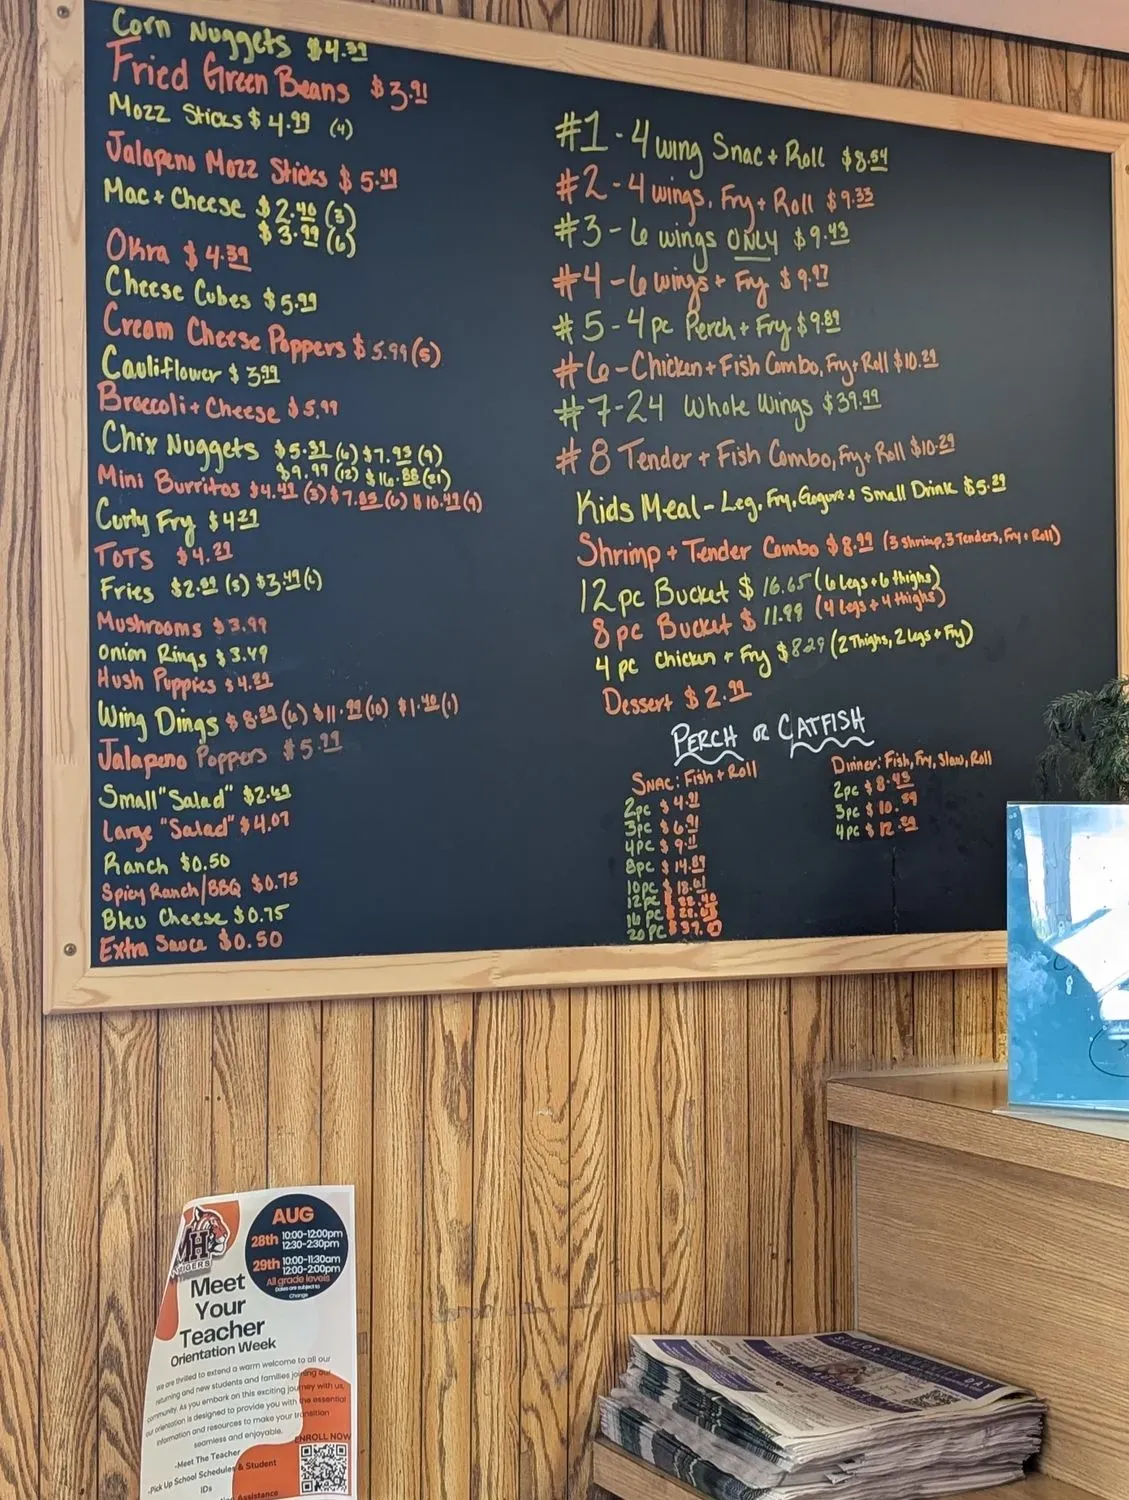 Corn Nuggets $4.39
Fried Green Beans $3.91
Mozz Sticks $4.99 (4)
Jalapeno Mozz Sticks $5.49
Mac + Cheese $2.40 (3)
$3.99 (6)
Okra $4.39
Cheese Cubes $5.99
Cream Cheese Poppers $5.99 (5)
Cauliflower $3.99
Broccoli + Cheese $5.99
Chix Nuggets $5.39 (6) $7.93 (9)
$9.99 (12) $16.88 (21)
Mini Burritos $4.49 (3) $7.85 (6) $10.49 (9)
Curly Fry $4.29
TOTS $4.29
Fries $2.89 (s) $3.49 (L)
Mushrooms $3.99
Onion Rings $3.49
Hush Puppies $4.29
Wing Dings $8.89 (6) $11.99 (10) $1.40 (1)
Jalapeno Poppers $5.99
Small "Salad" $2.69
Large "Salad" $4.07
Ranch $0.50
Spicy Ranch/BBQ $0.75
Bku Cheese $0.75
Extra Sauce $0.50
#1 - 4 wing Snac + Roll $8.54
#2 - 4 wings, Fry + Roll $9.33
#3 - 6 wings ONLY $9.43
#4 - 6 wings + Fry $9.97
#5 - 4 pc Perch + Fry $9.89
#6 - Chicken + Fish Combo, Fry + Roll $10.29
#7 - 24 Whole Wings $39.99
#8 Tender + Fish Combo, Fry + Roll $10.29
Kids Meal - Leg, Fry, Gogurt + Small Drink $5.29
Shrimp + Tender Combo $8.99 (3 Shrimp, 3 Tenders, Fry + Roll)
12 pc Bucket $16.65 (6 Legs + 6 thighs)
8 pc Bucket $11.99 (4 Legs + 4 thighs)
4 pc Chicken + Fry $8.29 (2 Thighs, 2 Legs + Fry)
Dessert $2.99
PERCH or CATFISH
SNAC: Fish + Roll
2pc $4.91
3pc $6.91
4pc $9.11
8pc $14.89
10pc $18.61
12pc
16 pc
20 PC $37.
Dinner: Fish, Fry, Slaw, Roll
2pc $8.45
3pc $10.59
4pc $12.29
MH
TIGERS
AUG
28th 10:00-12:00pm
12:30-2:30pm
29th 10:00-11:30am
12:00-2:00pm
All grade levels
Dates are subject to
Change
Meet
Your
Teacher
Orientation Week
We are thrilled to extend a warm welcome to all our
returning and new students and families joining our
community. As you embark on this exciting journey with us,
our orientation is designed to provide you with the essential
information and resources to make your transition
seamless and enjoyable.
ENROLL NOW
-Meet The Teacher
-Pick Up School Schedules & Student
IDs
Assistance